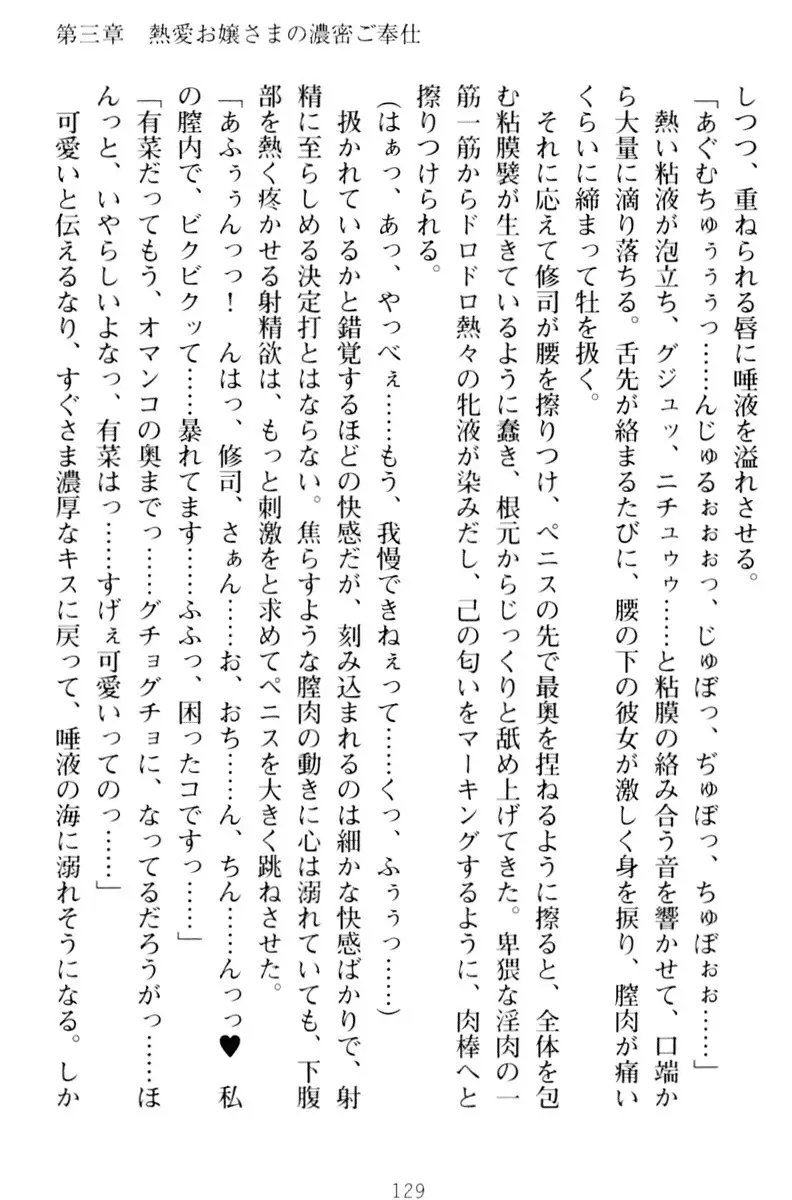 第三章　熱愛お嬢さまの濃密ご奉仕
しつつ、重ねられる唇に唾液を溢れさせる。
「あぐむちゅぅぅぅっ……んじゅるぉぉぉっ、じゅぽっ、ぢゅぽっ、ちゅぽぉぉ……」
　熱い粘液が泡立ち、グジュッ、ニチュゥゥ……と粘膜の絡み合う音を響かせて、口端か
ら大量に滴り落ちる。舌先が絡まるたびに、腰の下の彼女が激しく身を捩り、膣肉が痛い
くらいに締まって牡を扱く。
　それに応えて修司が腰を擦りつけ、ペニスの先で最奥を捏ねるように擦ると、全体を包
む粘膜襞が生きているように蠢き、根元からじっくりと舐め上げてきた。卑猥な淫肉の一
筋一筋からドロドロ熱々の牝液が染みだし、己の匂いをマーキングするように、肉棒へと
擦りつけられる。
（はぁっ、あっ、やっべぇ……もう、我慢できねぇって……くっ、ふぅぅっ……）
　扱かれているかと錯覚するほどの快感だが、刻み込まれるのは細かな快感ばかりで、射
精に至らしめる決定打とはならない。焦らすような膣肉の動きに心は溺れていても、下腹
部を熱く疼かせる射精欲は、もっと刺激をと求めてペニスを大きく跳ねさせた。
「あふぅぅんっっ！　んはっ、修司、さぁん……お、おち……ん、ちん……んっっ♥　私
の膣内で、ビクビクッて……暴れてます……ふふっ、困ったコですっ……」
「有菜だってもう、オマンコの奥までっ……グチョグチョに、なってるだろうがっ……ほ
んっと、いやらしいよなっ、有菜はっ……すげぇ可愛いってのっ……」
　可愛いと伝えるなり、すぐさま濃厚なキスに戻って、唾液の海に溺れそうになる。しか
129